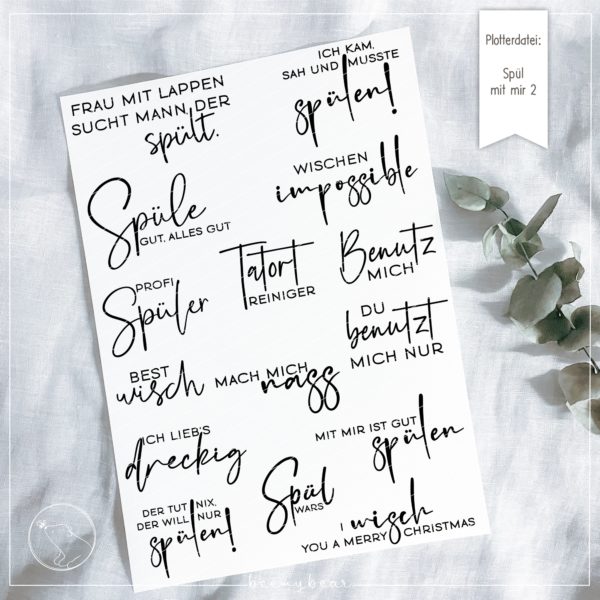 Plotterdatei:
Spül
mit mir 2
FRAU MIT LAPPEN
SUCHT MANN, DER
spült.
ICH KAM,
SAH UND MUSSTE
spülen!
WISCHEN
impossible
Spüle
GUT, ALLES GUT
Tatort
REINIGER
Benutz
MICH
PROFI
Spüler
DU
benutzt
MICH NUR
BEST
wisch
MACH MICH
nass
ICH LIEB'S
dreckig
MIT MIR IST GUT
spülen
Spül
WARS
DER TUT NIX,
DER WILL NUR
spülen!
I wisch
YOU A MERRY CHRISTMAS
beemybear